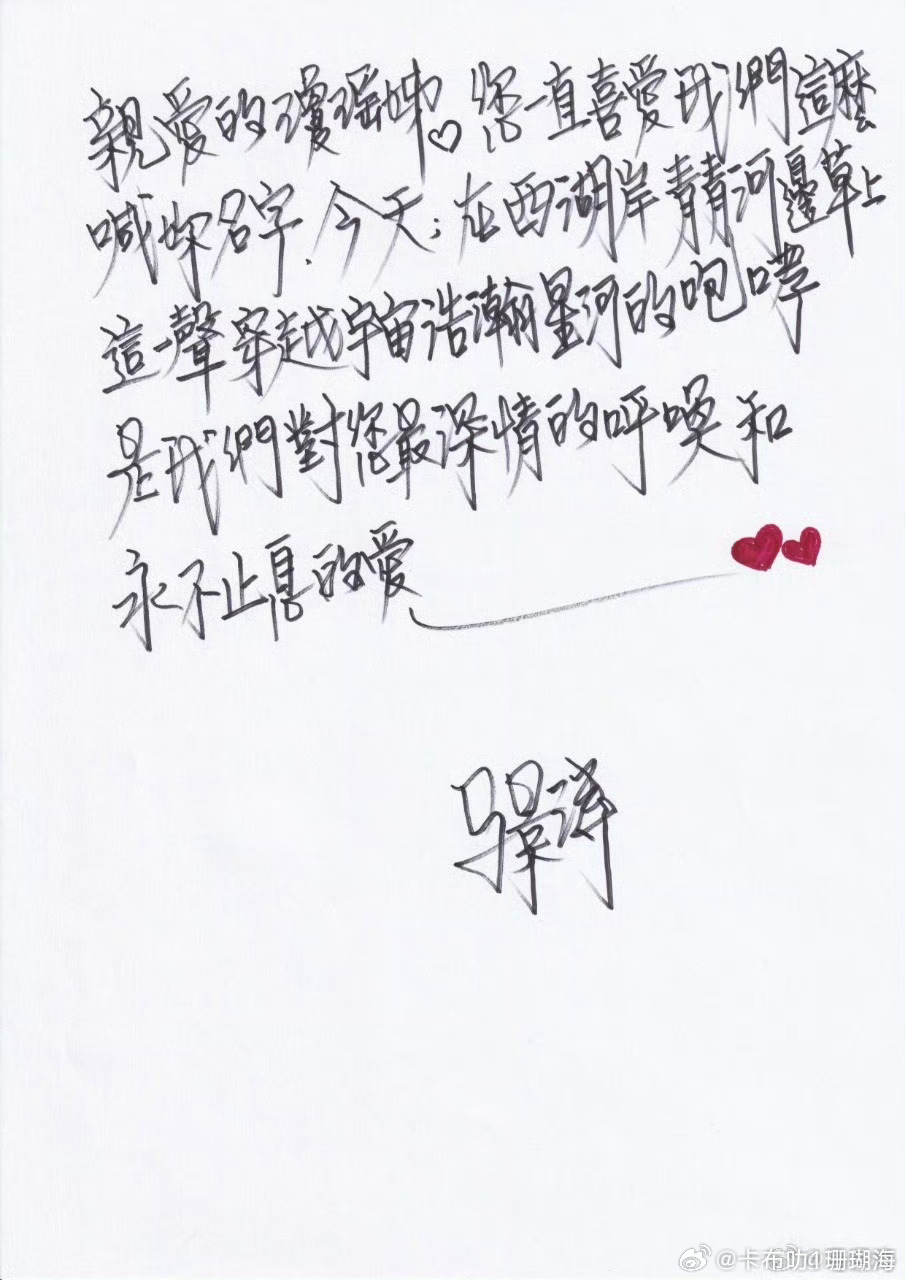 親愛的瓊瑤姊♡您一直喜愛我們這麼
喊你名字.今天:在西湖岸青青河邊草上
這一聲穿越宇宙浩瀚星河的咆哮
是我們對您最深情的呼喚和
永不止息的愛
景淳
@卡布叻4珊瑚海